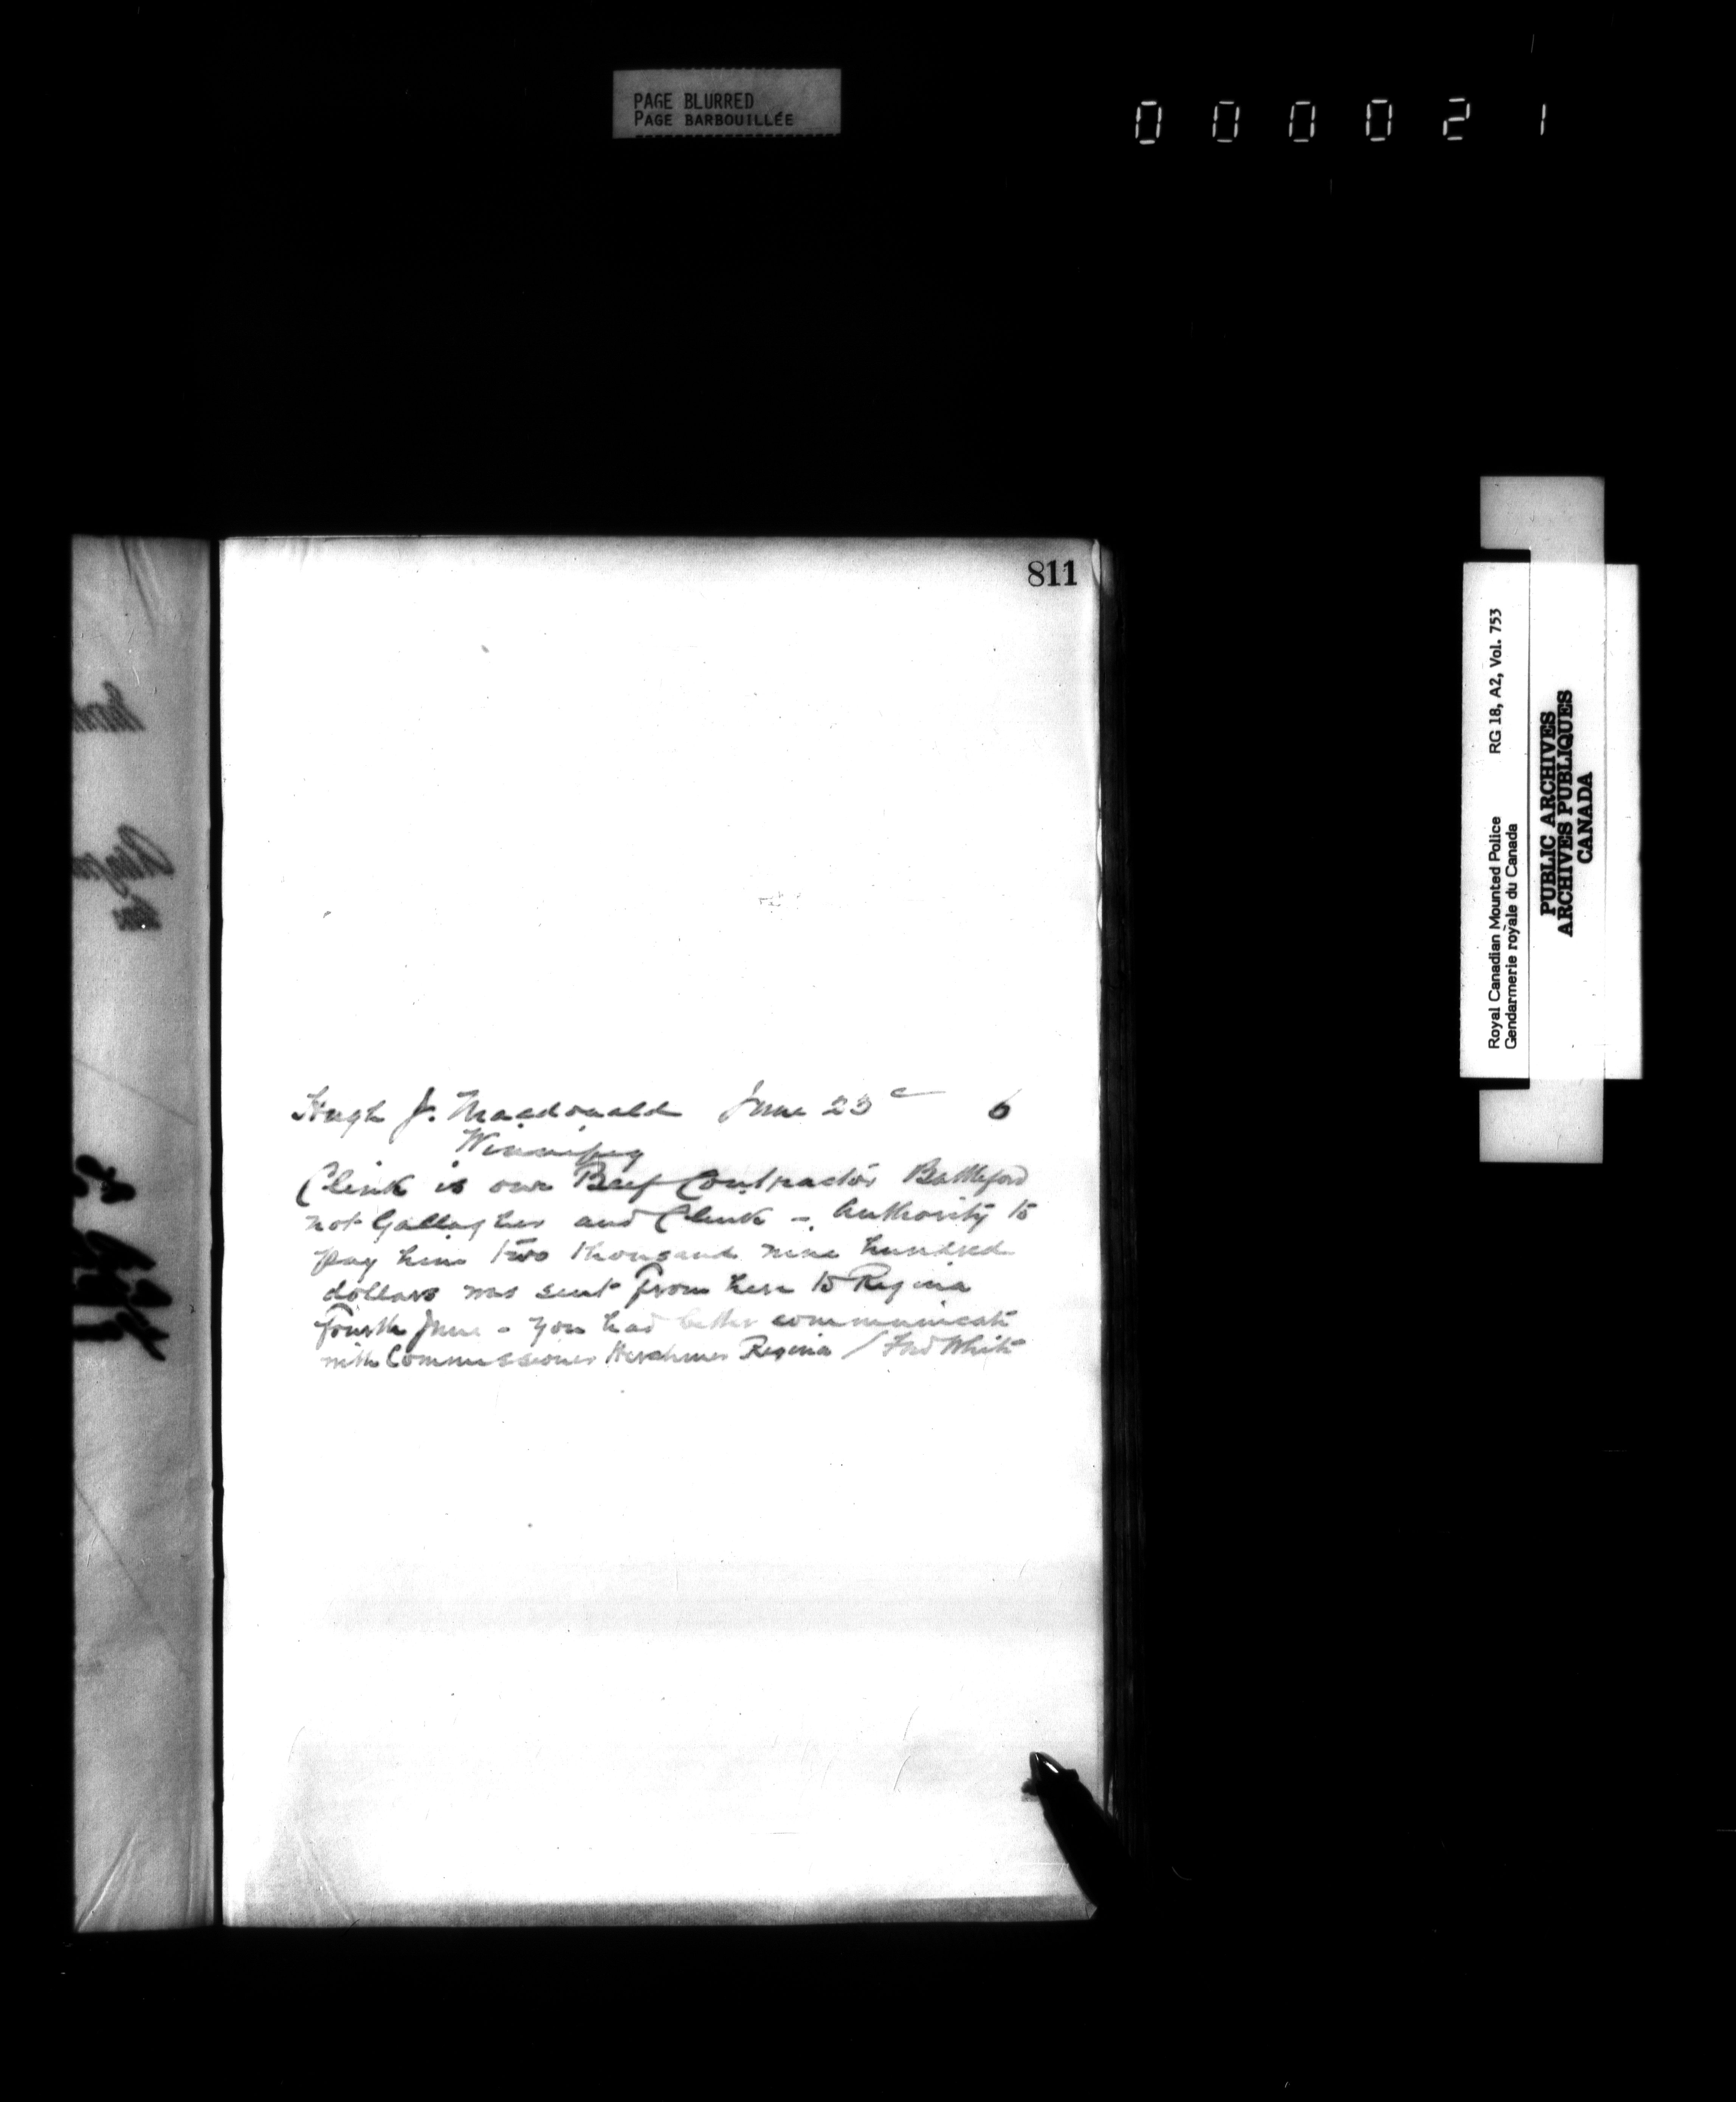 PAGE BLURRED
PAGE BARBOUILLÉE
000021
811
Hugh J. Macdonald June 23 6
Winnipeg
Clink is our Beef Contractor Battleford
not Gallagher and Clink - Authority to
pay him two thousand nine hundred
dollars was sent from here to Regina
Fourth June - You had better communicate
with Commissioner Herchmer Regina / Fred White
Royal Canadian Mounted Police RG 18, A2, Vol. 753
Gendarmerie royale du Canada
PUBLIC ARCHIVES
ARCHIVES PUBLIQUES
CANADA